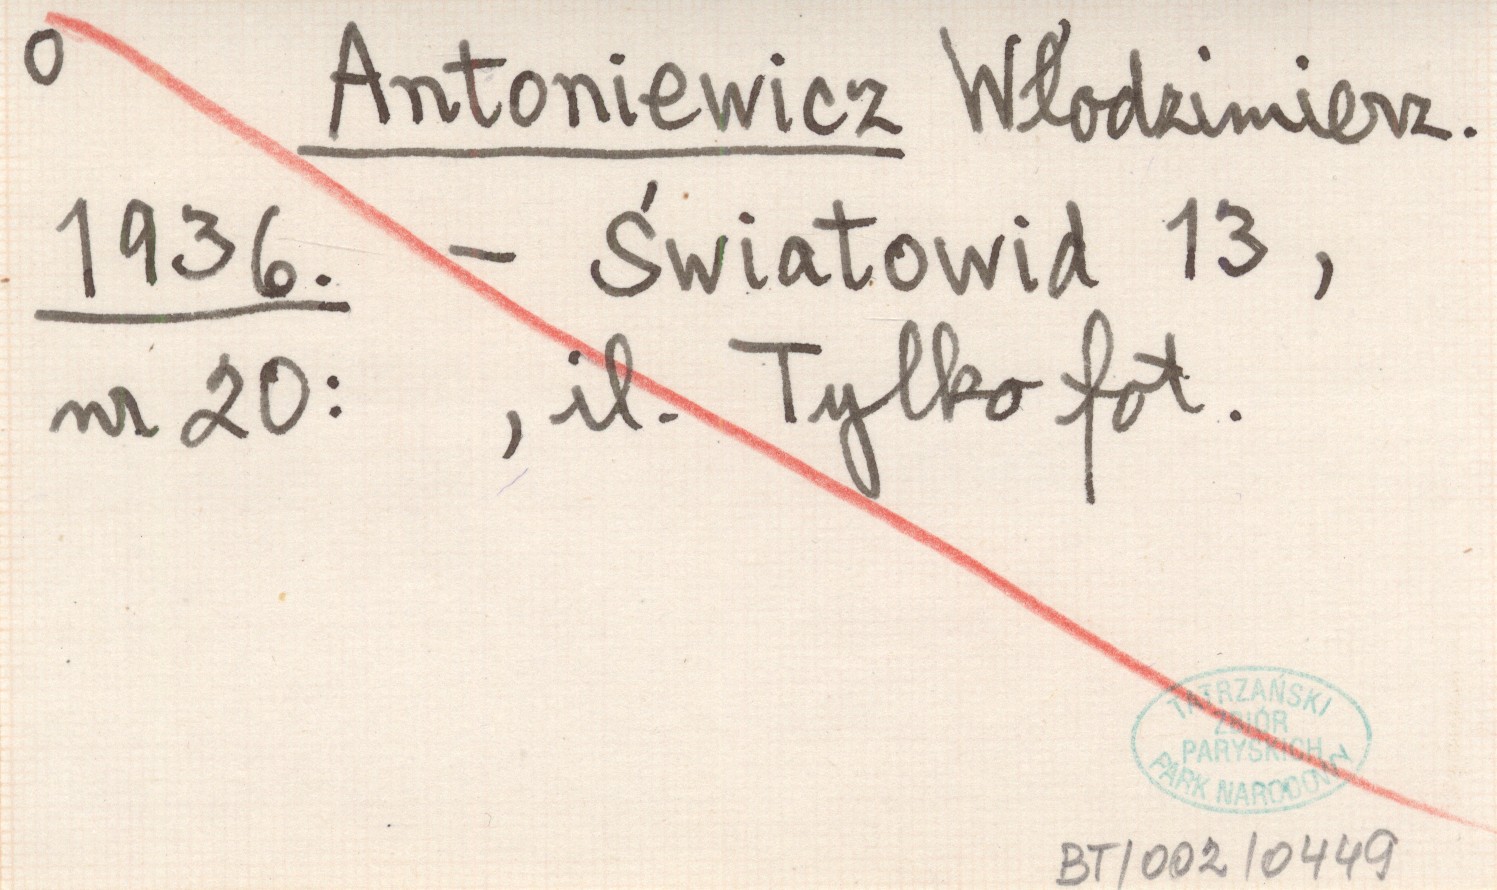 O
Antoniewicz Włodzimierz.
1936. – Światowid 13,
nr 20: , il. Tylko fot.
TATRZAŃSKI
ZBIÓR
PARYSKICH
PARK NARODOWY
BT/002/0449